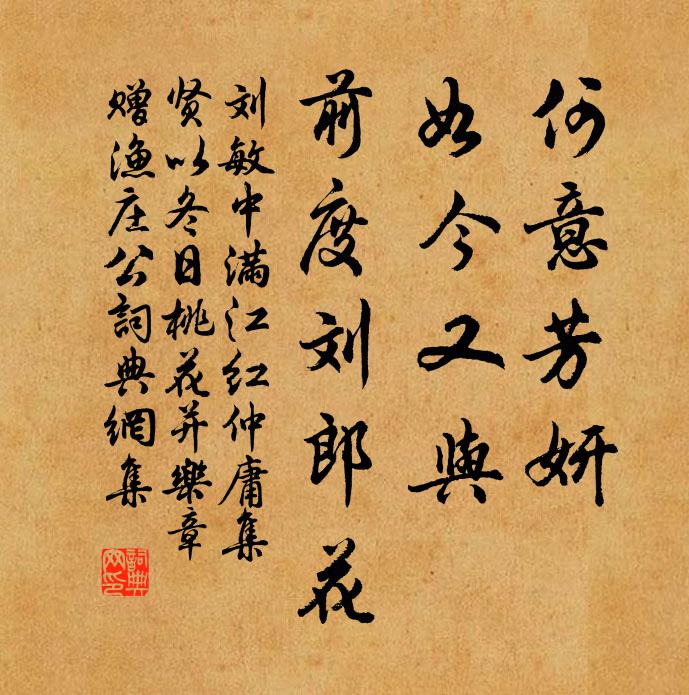 何意芳妍
如今又與
前度刘郎花
刘敏中满江红仲庸集
贤以冬日桃花并樂章
赠渔庄公詞典網集
詞典网印